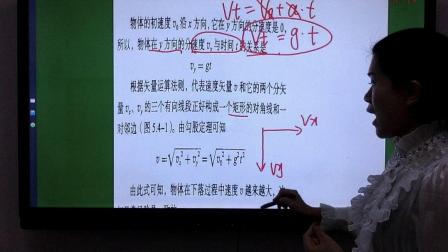 Vt = V₀ + a·t
物体的初速度 v₀ 沿 x 方向,它在 y 方向的分速度是 0,
Vt = g·t
所以,物体在 y 方向的分速度 vᵧ 与时间 t 的关系是
vᵧ = gt
根据矢量运算法则,代表速度矢量 v 和它的两个分矢
量 vₓ、vᵧ 的三个有向线段正好构成一个矩形的对角线和一
对邻边(图 5.4-1)。由勾股定理可知
Vx
v = √(vₓ² + vᵧ²) = √(v₀² + g²t²)
Vy
由此式可知,物体在下落过程中速度 v 越来越大,